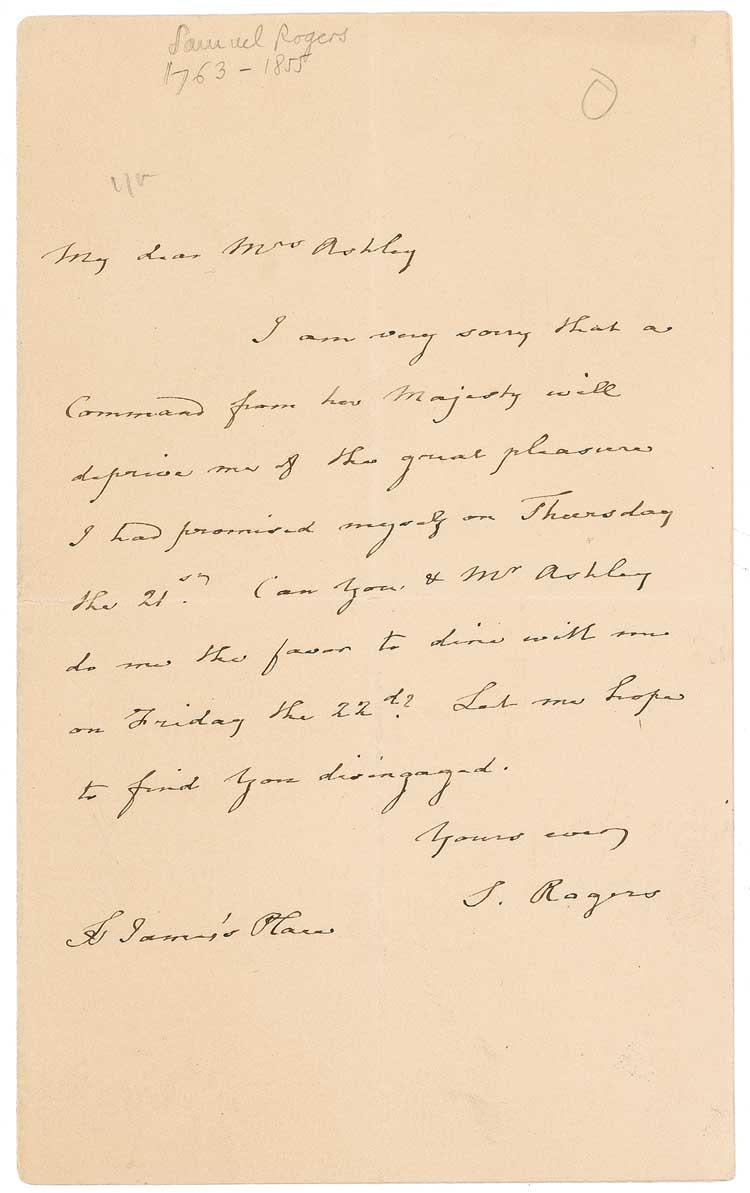 Samuel Rogers
1763 - 1855
My dear Mrs Ashley
I am very sorry that a
Command from her Majesty will
deprive me of the great pleasure
I had promised myself on Thursday
the 21st. Can You & Mr Ashley
do me the favor to dine with me
on Friday the 22d? Let me hope
to find You disengaged.
Yours ever
S. Rogers
St James's Place